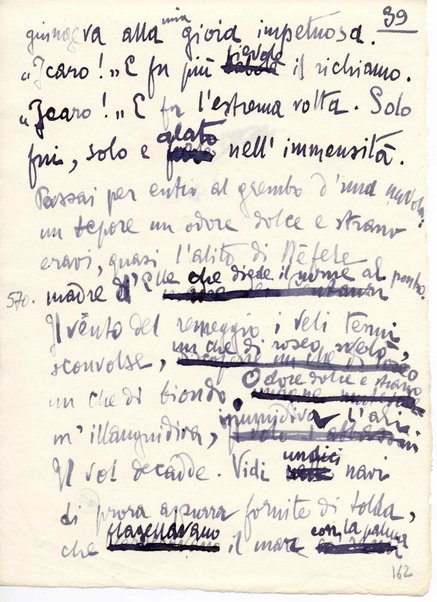 39
giungeva alla mia gioia impetuosa.
"Icaro!" E fu più fievole il richiamo.
"Icaro!" E fu l'estrema volta. Solo
fui, solo e alato nell'immensità.
Passai per entro al grembo d'una nuvola:
un tepore un odore dolce e strano
eravi, quasi l'alito di Nèfele
570. madre d'Elle che diede il nome al ponto.
Il vento del remeggio i veli tenui
sconvolse, un che di roseo svelò,
un che di biondo. Odore dolce e strano
m'illanguidiva, inumidiva l'ali
Il vol decadde. Vidi undici navi
di prora azzurra fornite di tolda,
che flagellavano il mare con la palma
162